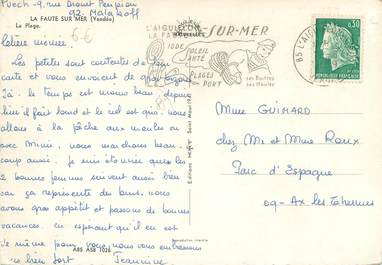 Puech - 9, rue Benoit
92 - Malakoff
LA FAUTE SUR MER (Vendée)
La Plage.
6€
Chère mémée
Les petits sont contentes de la
carte et vous envoient de gros bisous
Ici le temps est moins beau, depuis
hier il fait froid et le ciel est gris nous
allons à la pêche aux moules ou
avec mimi, nous marchons beau-
coup aussi. Je suis étonnée que les
2 bonnes femmes suivent aussi bien
car ça représente des kms. nous
avons gros appétit et passons de bonnes
vacances, en espérant qu'il en est
de même pour vous, nous vous embrassons
bien fort Jeannine
L'AIGUILLON SUR-MER
LA FAUTE
IODE
SOLEIL
SANTÉ
PLAGES
PORT
Ses Huîtres
Ses Moules
85 L'AIG
0,30
REPUBLIQUE FRANÇAISE
Mme GUIMARD
chez Mr et Mme Roux
Parc d'Espagne
09 - Ax les Thermes
Reproduction interdite
A85 A58 1028